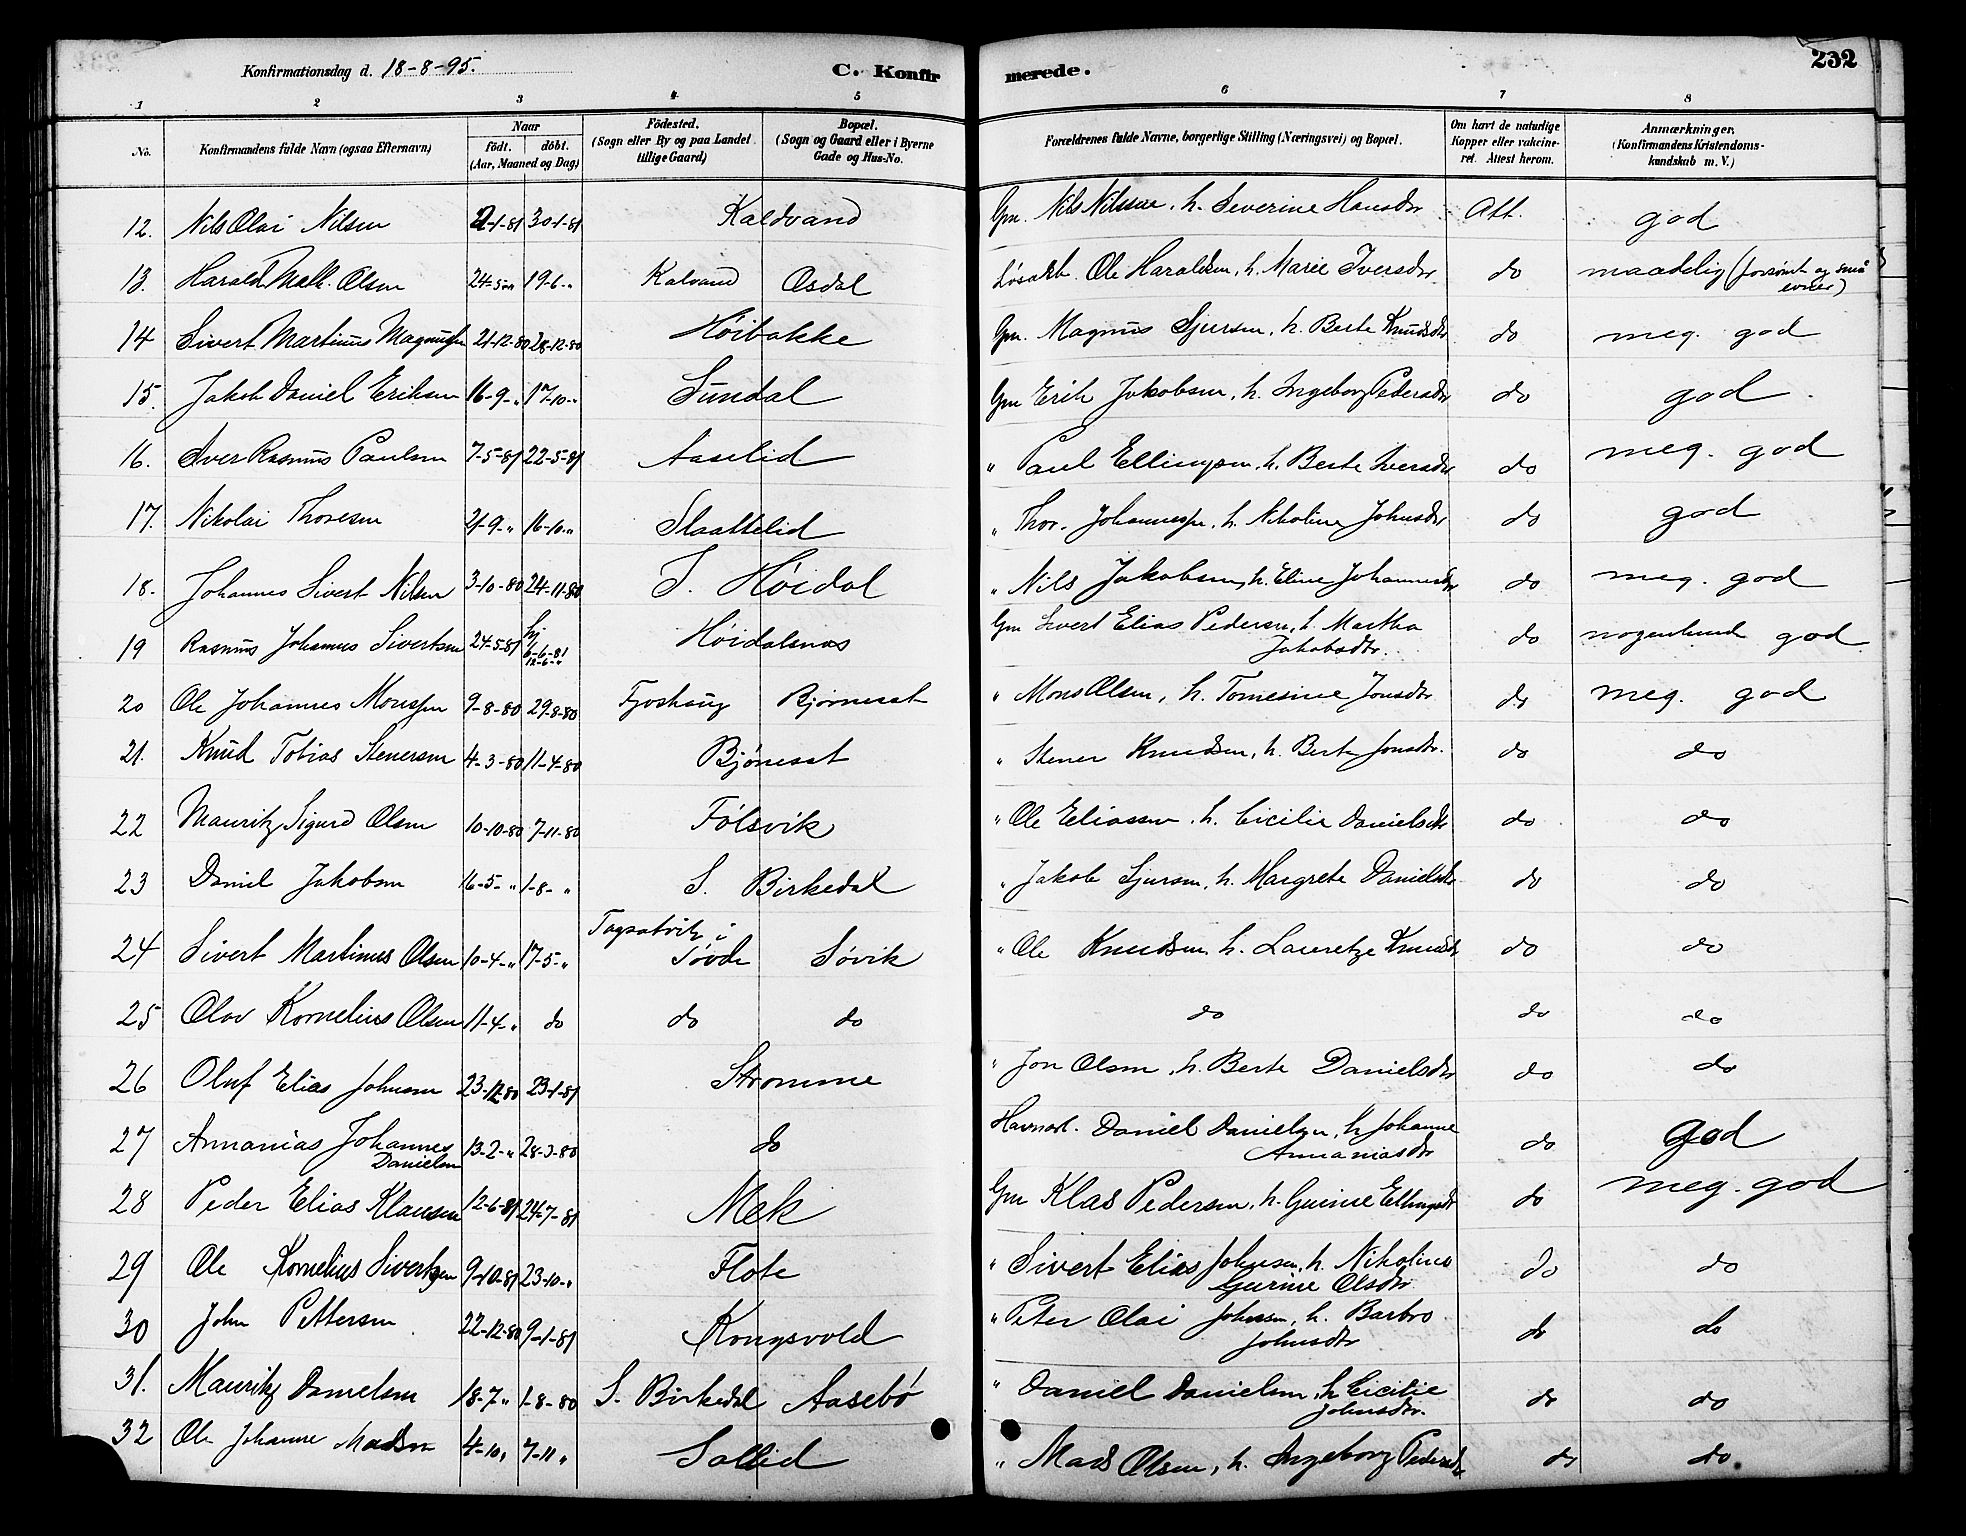 Konfirmationsdag d. 18-8-95. C. Konfirmerede. 232
1 2 3 4 5 6 7 8
No. Konfirmandens fulde Navn (ogsaa Efternavn) Naar födt. döbt. (Aar, Maaned og Dag) Födested. (Sogn eller By og paa Landet tillige Gaard) Bopæl. (Sogn og Gaard eller i Byerne Gade og Hus-No. Forældrenes fulde Navne, borgerlige Stilling (Næringsvei) og Bopæl. Om havt de naturlige Kopper eller vakcineret. Attest herom. Anmærkninger. (Konfirmandens Kristendomskundskab m. V.)
12. Nils Olai Nilsen 2-1-81 30-1-81 Kaldvand Gm. Nils Nilssen, h. Severine Hansdr Att. god
13. Harald Malk. Olsen 24-5-" 19-6-" Kalvand Osdal Løsarb. Ole Haraldsen, h. Marie Iversdr. do maadelig (forsømt og små evner)
14 Sivert Martinus Magnussen 21-12-80 28-12-80 Høibakke Gm. Magnus Sjursen, h. Berte Knudsdr do meg. god
15. Jakob Daniel Eriksen 16-9-" 17-10-" Sundal Gm Erik Jakobsen, h. Ingeborg Pedersdr do god.
16. Iver Rasmus Paulsen 7-5-81 22-5-81 Aaselid " Paul Ellingsen, h. Berte Iversdr do meg. god
17. Nikolai Thoresen 21-9-" 16-10-" Slaattelid " Thor. Johannessen, h. Nikoline Johnsdr do god
18. Johannes Sivert Nilsen 3-10-80 24-11-80 S. Høidal " Nils Jakobsen, h. Eline Johannesdr do meg. god
19 Rasmus Johannes Sivertsen 24-5-81 hj 6-6-81 12-6-" Høidalsnæs Gm Sivert Elias Pedersen, h. Martha Jakobsdtr. do nogenlunde god
20 Ole Johannes Monssen 9-8-80 29-8-80 Fjoshaug Bjørneset " Mons Olsen, h. Tomesine Jonsdr do meg. god
21. Knud Tobias Stenersen 4-3-80 11-4-80 Bjøneset " Stener Knudsen, h. Berte Jonsdr. do do
22 Mauritz Sigurd Olsen 10-10-80 7-11-80 Følsvik " Ole Eliassen, h. Cicilie Danielsdr do do
23 Daniel Jakobsen 16-5-" 1-8-" S. Birkedal " Jakob Sjursen, h. Margrete Danielsdr do do
24 Sivert Martinus Olsen 10-4-" 17-5-" Tagsatvik i Søvde Søvik " Ole Knudsen h. Lauretze Knudsdr do do
25 Olav Kornelius Olsen 11-4-" do do do do do do
26 Oluf Elias Johnsen 23-12-80 23-1-81 Strømme " Jon Olsen, h. Berte Danielsdr do do
27 Annanias Johannes Danielsen 13-2-" 28-3-80 do Havnarb. Daniel Danielsen, h Johanne Annaniasdr do god
28 Peder Elias Klausen 12-6-81 24-7-81 Mek Gm Klas Pedersen, h. Gurine Ellingsdr do meg. god
29 Ole Kornelius Sivertsen 9-10-81 23-10-" Flote " Sivert Elias Johnsen, h. Nikoline Gurine Olsdr. do do
30 John Pettersen 22-12-80 9-1-81 Kongsvold " Peter Olai Johnsen, h. Barbro Johnsdr do do
31. Mauritz Danielsen 18-7-" 1-8-80 S. Birkedal Aasebø " Daniel Danielsen, h Cicilie Johnsdr. do do
32 Ole Johanne Madsen 4-10-" 7-11-" Sollid " Mads Olsen, h. Ingeborg Pedersdr do do